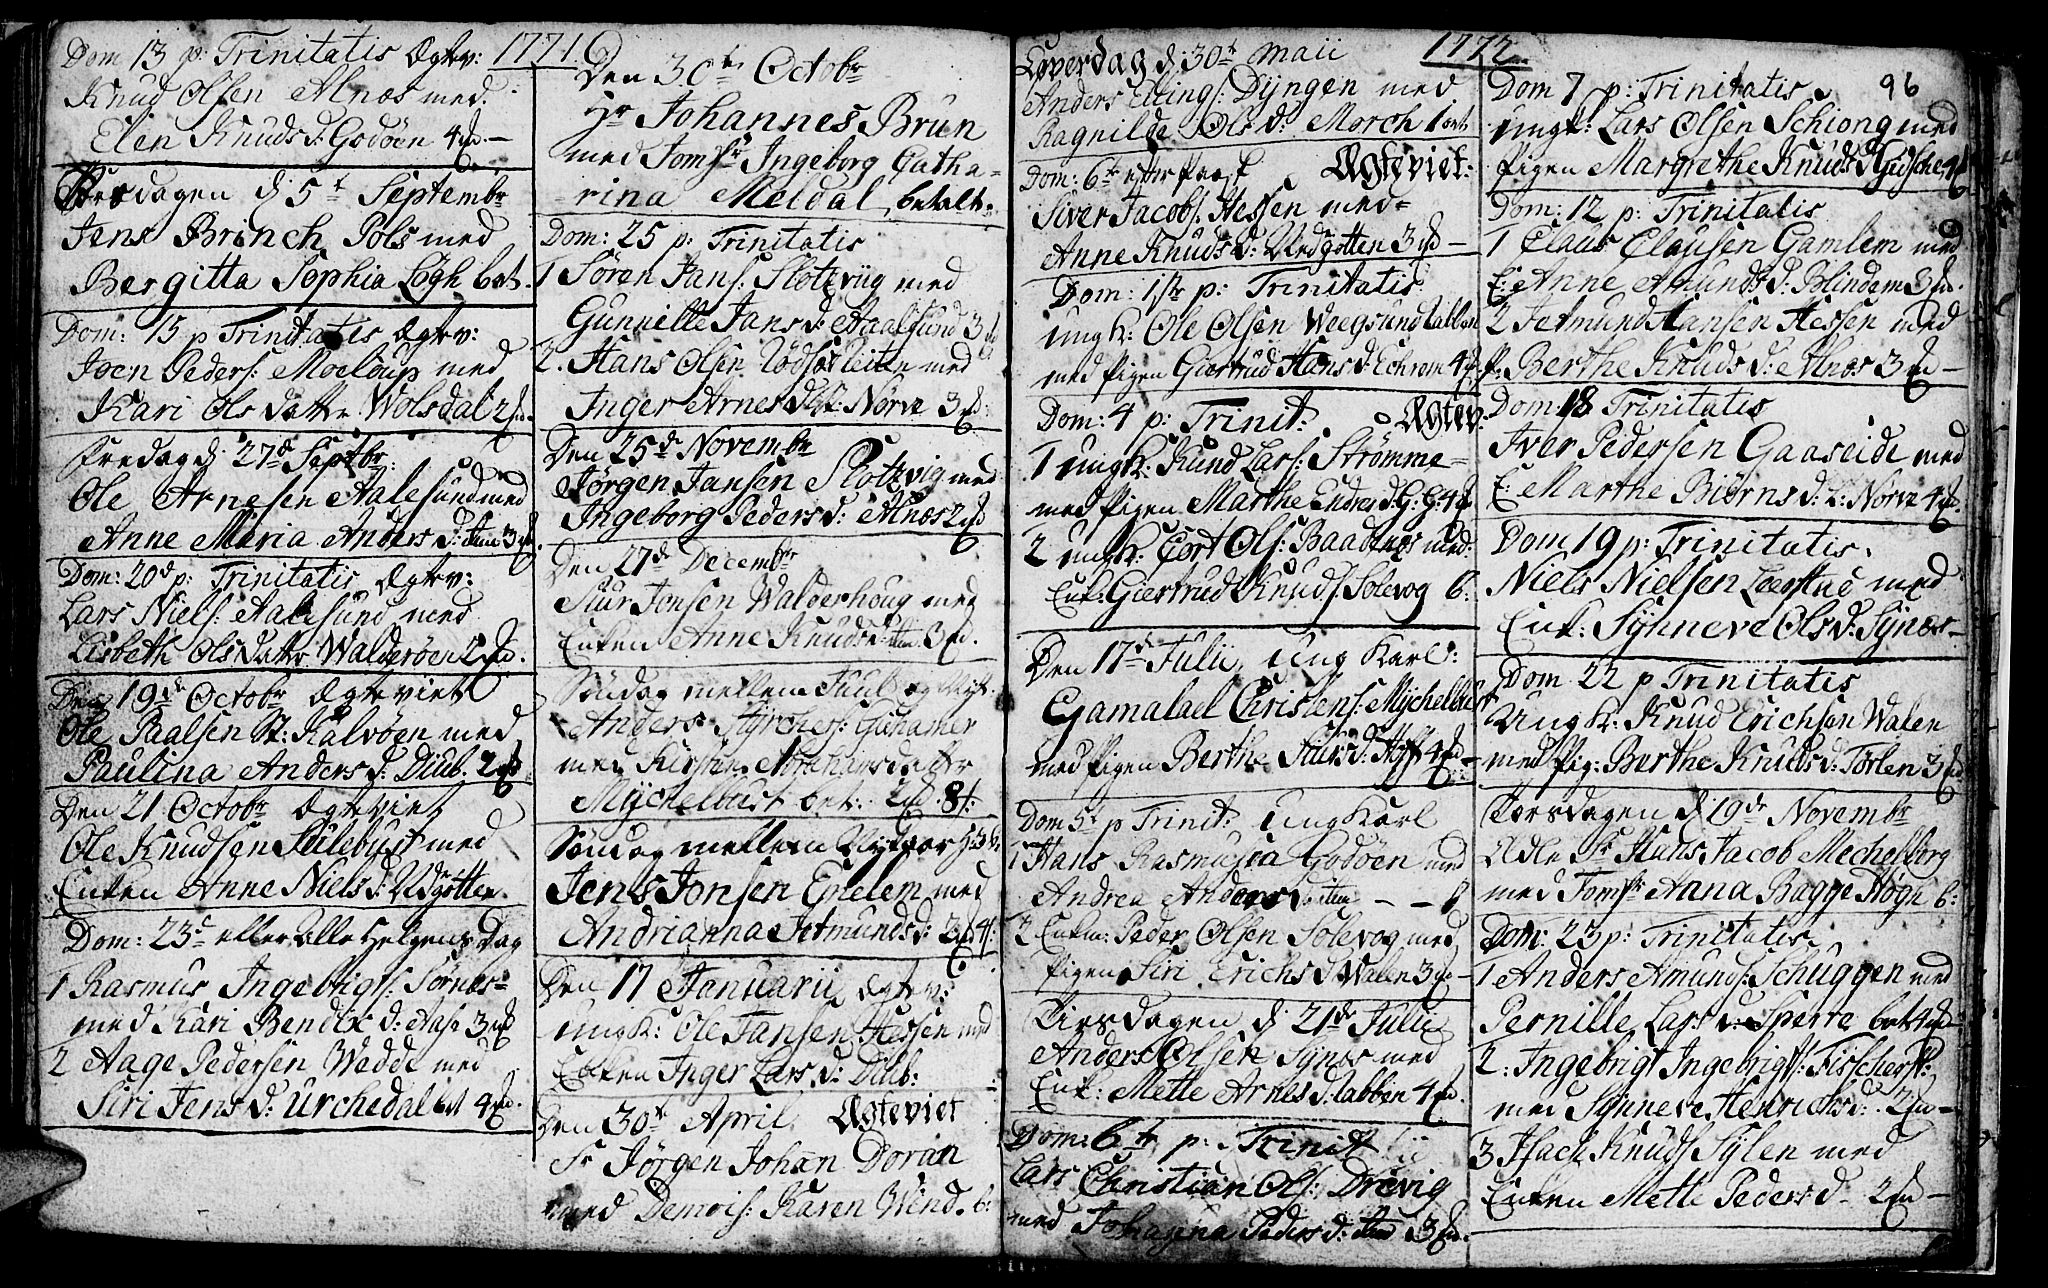 Dom 13 p: Trinitatis Ægtev: 1771.
Knud Olsen Alnæs med
Elen Knuds d: Godöen 4
Torsdagen d 5t Septembr
Jens Brinch Pols med
Bergitta Sophia Løgh bet.
Dom: 15 p Trinitatis Ægtev:
Joen Peders: Moeloup med
Kari Ols datter Wolsdal 2
Fredag d: 27de Septbr:
Ole Arnesen Aalesund med
Anne Maria Anders d: item 3
Dom: 20de p: Trinitatis Ægtev:
Lars Niels: Aalesund med
Lisbeth Olsdatter Walderöen 2
Den 19de Octobr Ægteviet
Ole Paalsen St: Kalvöen med
Paulina Anders d: Diub. 2
Den 21 Octobr Ægteviet
Ole Knudsen Sulebust med
Enken Anne Niels d: Udgotten.
Dom: 23de eller Alle Helgens Dag
1 Rasmus Ingebrigts: Sørnæs
med Kari Bendix d: Aase 3
2 Aage Pedersen Wedde med
Siri Jens d: Urchedal bet 4
Den 30te Octobr
Hr Johannes Brun
med Jomfr Ingeborg Catha-
rina Meldal, betalt.
Dom: 25 p: Trinitatis
1 Sören Jans: Slotzviig med
Gunnilte Jans d: Aaalesund 3
2. Hans Olsen Rödsætleiten med
Inger Arnes datter Nörve 3
Den 25de Novembr
Jörgen Jansen Slotzvig med
Ingeborg Peders d: Alnæs 2
Den 27de Decembr
Siur Jonsen Walderhoug med
Enken Anne Knuds d: item 3
Söndag mellem Juul og Nyt:
Anders
med Kirsten Abrahamsdatter
Mychelbust bet: 2 8
Söndag mellem Nytaar
Jens Jonsen Emelem med
Andrianna Jetmunds d: 2 4
Den 17 Januarii Ægtev:
Ungk: Ole Jansen Hessen med
Enken Inger Lars d: Diub:
Den 30te April Ægteviet
Sr Jörgen Johan Doran
med Demois: Karen Wind. b:
Løverdag d: 30te Maii 1772.
Anders Elling: Dyngen med
Ragnilde Ols d: Morch 1 ort
Dom: 6te efter Paask Ægteviet:
Siver Jacobs: Hessen med
Anne Knuds d: Udgotten 3
Dom: 1ste p: Trinitatis
Ungk: Ole Olsen Weegsund labben
med Pigen Giertrud Hans d: Echrem 4
Dom: 4 p: Trinit. Ægtev:
1 Ungk: Knud Lars: Strømme
med Pigen Marthe Endres d: 4
2 Ungk: Cort Ols: Baadsnæs med
Enk: Giertrud Knuds: Solevog 6:
Den 17de Julii, Ung Karl:
Gamalael Christens: Mychelbust
med Pigen Berthe Siurs d: Hoff 4
Dom 5t p Trinit: Ung Karl
1 Hans Rasmusen Godöen med
Andrea Anders d: item
2 Enkm: Peder Olsen Solevog med
Pigen Siri Erichs d Walen 3
Tirsdagen d 21de Julii
Anders Olsen Synes med
Enk: Mette Arnes d: labben 4
Dom: 6te p: Trinit
Lars Christian Ols: Drevig
med Johanna Peders d: item 3
96
Dom 7 p: Trinitatis
Ungk: Lars Olsen Schiong med
Pigen Margrethe Knuds d Gidsche 4
Dom: 12 p: Trinitatis
1 Claus Clausen Gamlem med
E: Anne Amunds d: Blindem 3
2 Jetmund Hansen Hessen med
P: Berthe Knuds d: Alnæs 3
Dom 18 Trinitatis
Iver Pedersen Gaaseide med
E: Marthe Biörns d: L: Nörve 4
Dom 19 p: Trinitatis.
Niels Nielsen Leerstad med
Enk: Synneve Ols d: Synæs
Dom 22 p Trinitatis
Ungk: Knud Erichsen Walen
med Pig: Berthe Knuds d: Tørlen 3
Torsdagen d 19de Novembr
Adle Sr Hans Jacob Mechelborg
med Jomfr Anna Bagge Høgh 6:
Dom: 23 p: Trinitatis
1 Anders Amunds: Schuggen med
Pernille Lars d: Sperre bet 4
2: Ingebrigt Ingebrigts: Fischerst:
med Synneve Henrichs d: 2
3 Isach Knuds Sylen med
Enken Mette Peders d 2